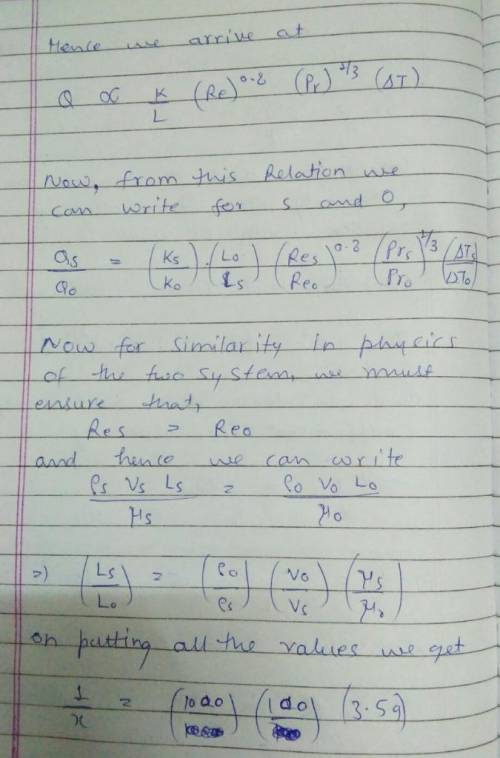 Hence we arrive at
Q ∝ K/L (Re)^0.8 (Pr)^1/3 (ΔT).
Now, from this Relation we
can write for s and O,
Qs/Qo = (Ks/Ko).(Lo/Ls) (Res/Reo)^0.8 (Prs/Pro)^1/3 (ΔTs/ΔTo)
Now for similarity in physics
of the two system, we must
ensure that,
Res = Reo
and hence we can write
ρs Vs Ls / μs = ρo Vo Lo / μo
=) (Ls/Lo) = (ρo/ρs) (Vo/Vs) (μs/μo)
on putting all the values we get
1/x = (1000/) (100/) (3.59)